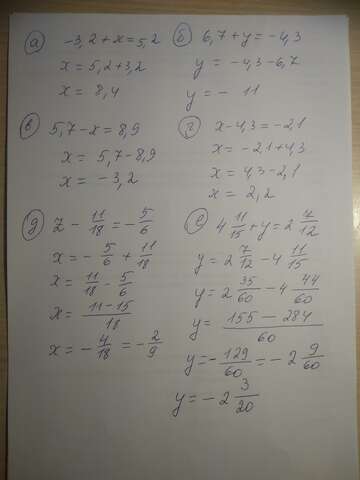 а) -3,2 + x = 5,2
x = 5,2 + 3,2
x = 8,4
б) 6,7 + y = -4,3
y = -4,3 - 6,7
y = - 11
в) 5,7 - x = 8,9
x = 5,7 - 8,9
x = -3,2
г) x - 4,3 = -2,1
x = -2,1 + 4,3
x = 4,3 - 2,1
x = 2,2
д) z - 11/18 = - 5/6
x = - 5/6 + 11/18
x = 11/18 - 5/6
x = 11-15/18
x = - 4/18 = - 2/9
е) 4 11/15 + y = 2 7/12
y = 2 7/12 - 4 11/15
y = 2 35/60 - 4 44/60
y = 155 - 284/60
y = - 129/60 = - 2 9/60
y = - 2 3/20